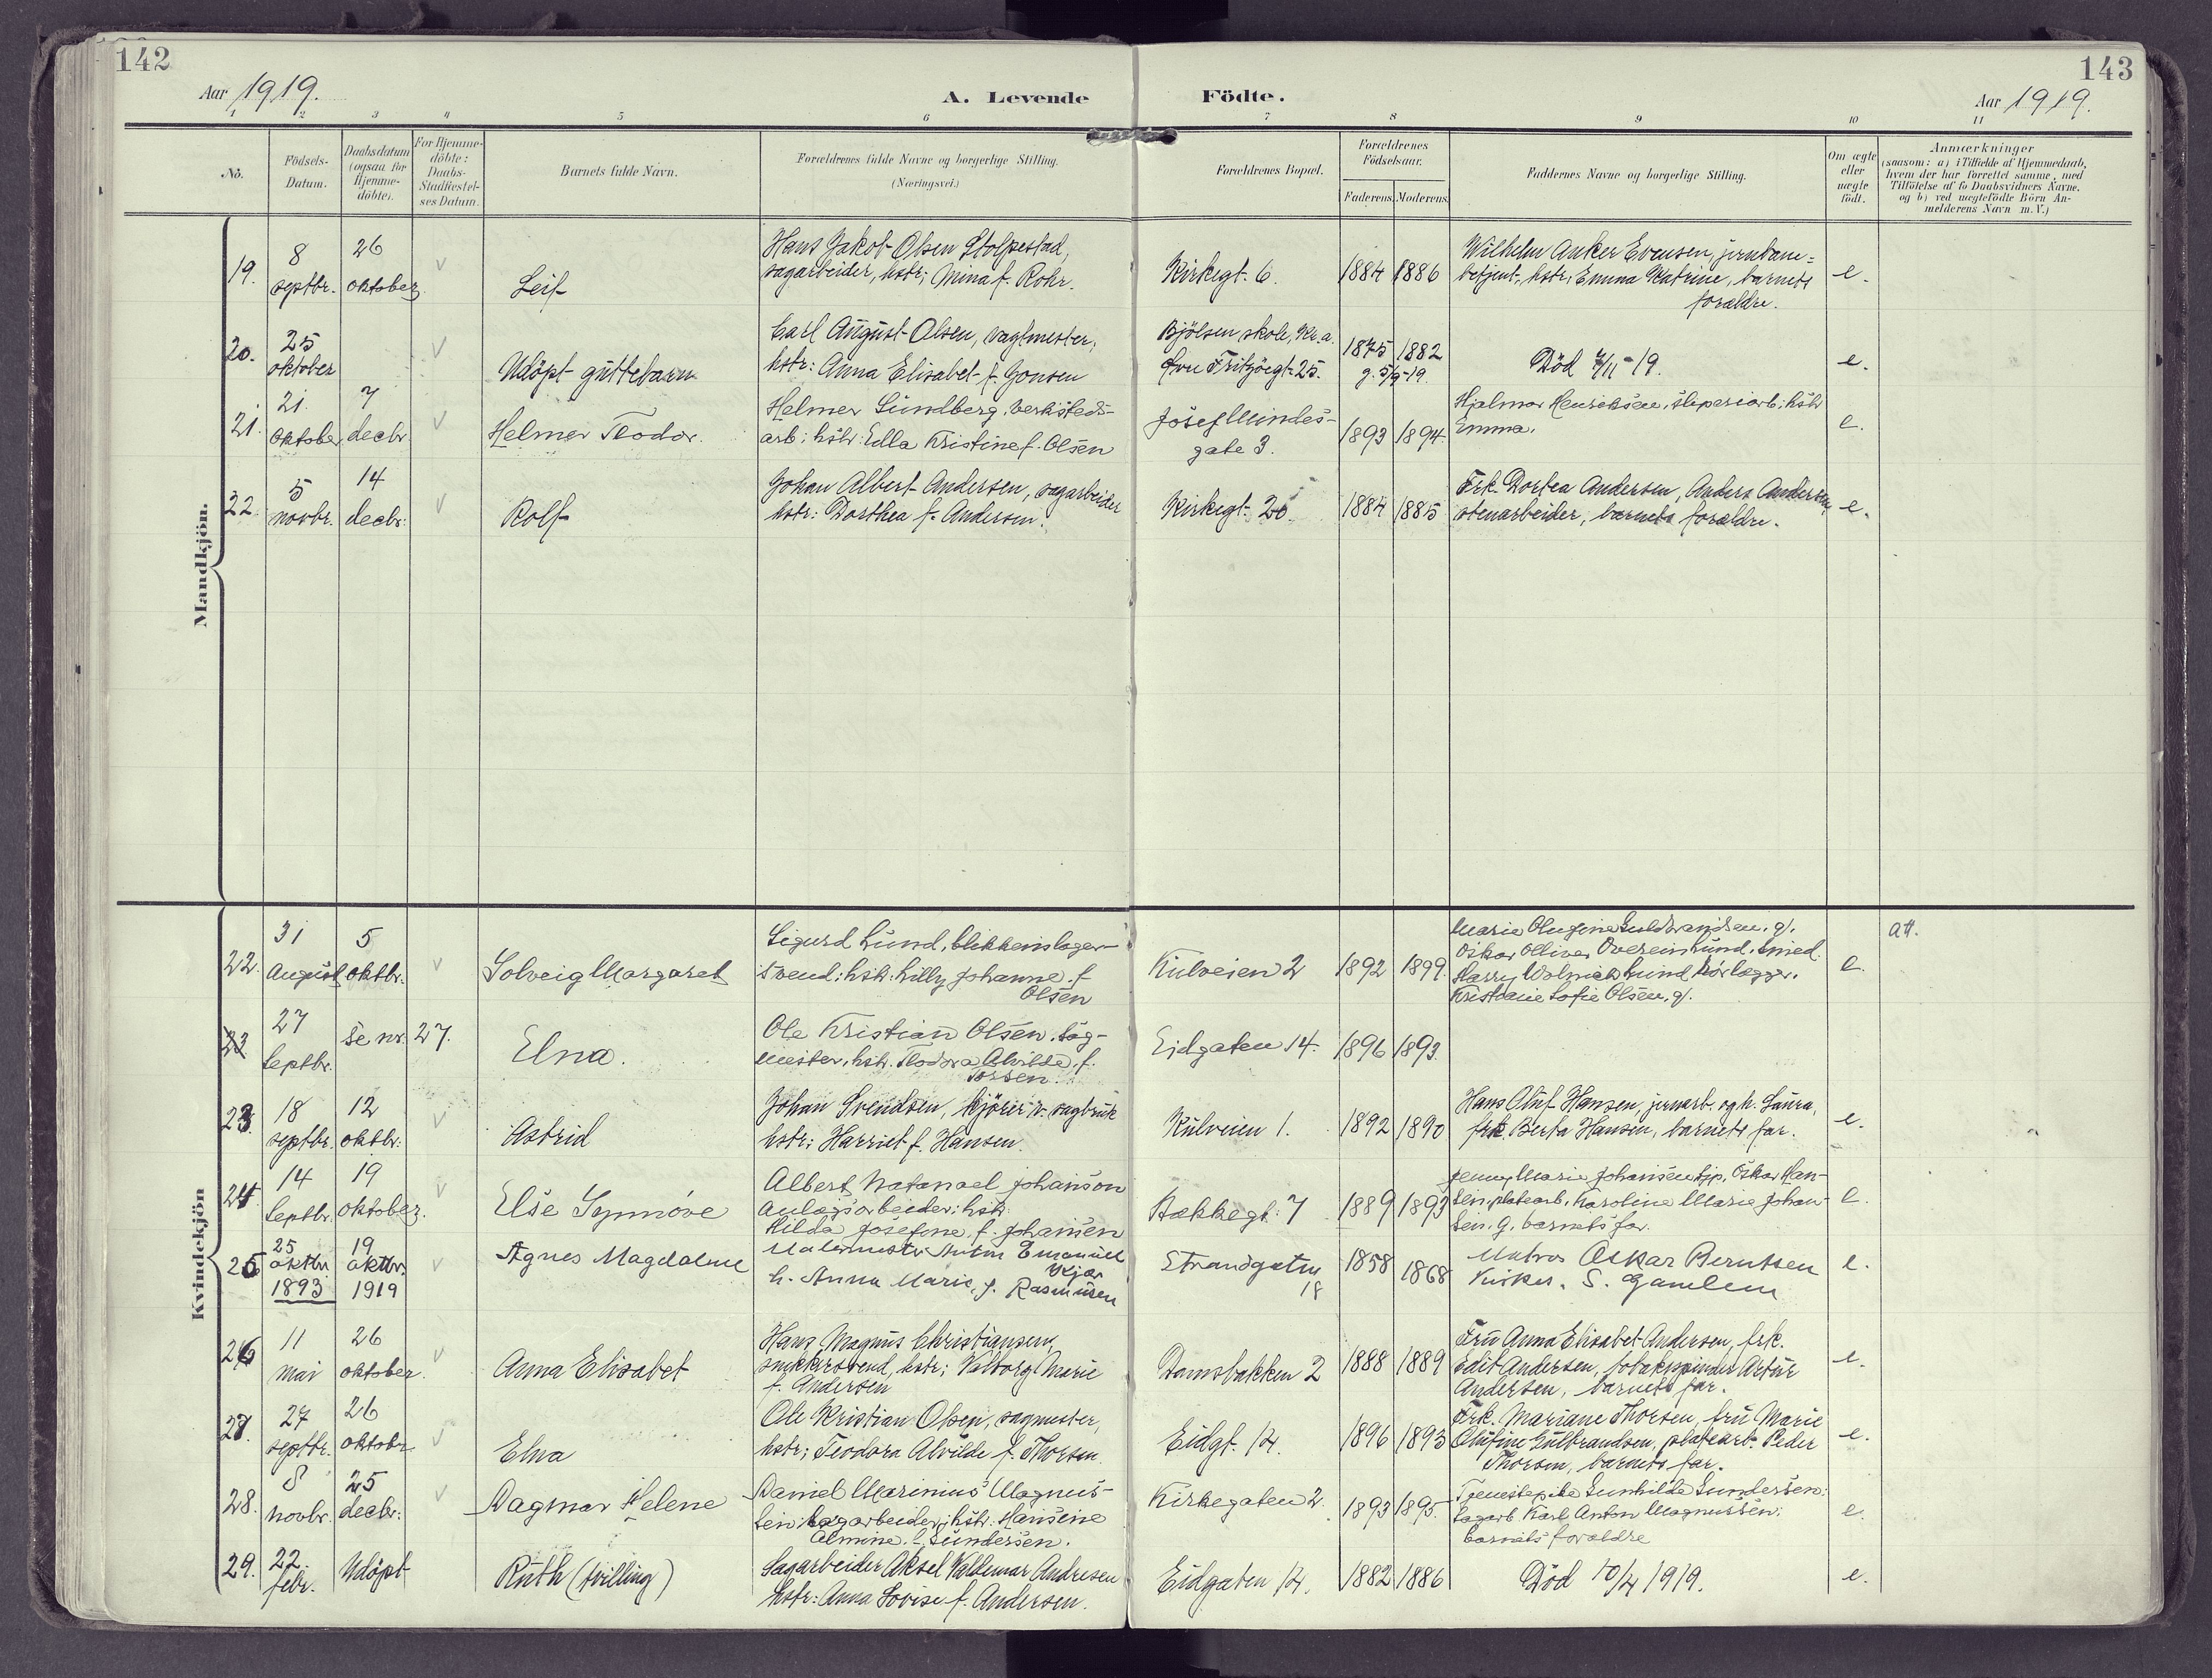 142
143
Aar 1919.
A. Levende
Födte.
Aar 1919.
1 2 3 4 5 6 7 8 9 10 11
No.
Födsels-Datum.
Daabsdatum (ogsaa for Hjemme-döbte).
For Hjemme-döbte: Daabs-Stadfæstel-ses Datum.
Barnets fulde Navn.
Forældrenes fulde Navne og borgerlige Stilling.
(Næringsvei.)
Forældrenes Bopæl.
Forældrenes Födselsaar.
Faderens. Moderens.
Faddernes Navne og borgerlige Stilling.
Om ægte eller uægte födt.
Anmærkninger
(saasom: a) i Tilfælde af Hjemmedaab,
hvem der har forrettet samme, med
Tilföielse af to Daabsvidners Navne,
og b) ved uægtefödte Börn An-
melderens Navn m. V.)
Mandkjön.
19. 8 septbr. 26 oktober Leif
Hans Jakob Olsen Stolpestad,
sagarbeider, hstr; Mina f. Rohr.
Kirkegt. 6. 1884 1886
Wilhelm Anker Evensen, jernbane-
betjent, hstr; Emma Katrine, barnets
forældre.
e.
20. 25 oktober Udöpt guttebarn
Carl August Olsen, vagtmester,
hstr: Anna Elisabet f. Jonsen
Bjölsen skole, Kr.a.
fru Fritzöegt. 25.
1875 1882
g. 5/9-19.
Död 7/11-19.
e.
21. 21. oktober 7 decbr. Helmer Teodor.
Helmer Lundberg, verksteds-
arb; hstr: Ella Kristine f. Olsen
Josef Mindes-
gate 3.
1893 1894
Hjalmar Henriksen, sliperiarb; hstr
Emma.
e.
22. 5 novbr. 14 decbr: Rolf
Johan Albert Andersen, sagarbeider
hstr: Dorthea f. Andersen.
Kirkegt. 20. 1884 1885
Frk. Dortea Andersen, Anders Andersen,
stenarbeider, barnets forældre.
e.
Kvindekjön
22. 31 August 5 oktbr. Solveig Margaret
Sigurd Lund, blikkenslager-
svend; hstr: Lilly Johanne f.
Olsen
Kulveien 2 1892 1899.
Marie Olugine Guldbrandsen, g/.
Oskar Olliver Overein Lund, smed.
Harry Lund Rörlægger.
Kristiane Sofie Olsen, g/.
e.
att.
23 27 Septbr. Se nr. 27. Elna.
Ole Kristian Olsen. Sag-
mester, hstr. Teodora Alvilde f.
Torsen.
Eidgaten 14. 1896 1893.
23. 18 septbr. 12 oktbr. Astrid
Johan Svendsen, kjörer v. sagbruk
hstr; Harriet f. Hansen.
Kulveien 1. 1892 1890
Hans Oluf Hansen, jernarb. og h. Laura,
frk. Berta Hansen, barnets far.
e.
24. 14 Septbr. 19 oktober. Else Synnöve
Albert Natanael Johanson
Anlægsarbeider; hstr.
Hilda Josefine f. Johansen
Bakkegt. 7 1889 1893
Jenny Marie Johansen tjp, Oskar Han-
sen, platearb. Karoline Marie Johan-
sen. g. barnets far.
e.
25 25 oktbr. 1893 19 oktbr. 1919 Agnes Magdalene
Malermester Anton Emanuel
Kjær
h. Anna Marie, f. Rasmusen
Strandgaten
18
1858 1868
Matros Oskar Berntsen
Kirkes. S. Gamlem
e.
26 11 mai 26 oktober. Anna Elisabet
Hans Magnus Christiansen,
snekkersvend, hstr; Valborg Marie
f. Andersen
Damsbakken 2 1888 1889
Fru Anna Elisabet Andersen, frk.
Edit Andersen, tobakspinder Artur
Andersen, barnets far.
e.
27. 27 septbr. 26 oktobr. Elna
Ole Kristian Olsen, sagmester,
hstr; Teodora Alvilde f. Thorsen.
Eidgt. 14. 1896 1893
Frk. Mariane Thorsen, fru Marie
Olufine Gulbrandsen, platearb. Peder
Thorsen, barnets far.
e.
28. 8 novbr. 25 decbr: Dagmar Helene
Daniel Marinius Magnus-
sen sagarbeider; hstr. Hansine
Almine f. Gundersen.
Kirkegaten 2. 1893 1895.
Tjenestepike Gunhilde Gundersen;
Sagarb Karl Anton Magnussen;
barnets forældre
e.
29. 22. febr. Udöpt Ruth (tvilling)
Sagarbeider Aksel Valdemar Andresen
hstr: Anna Lovise f. Andersen.
Eidgaten 14. 1882 1886
Död 10/4 1919.
e.